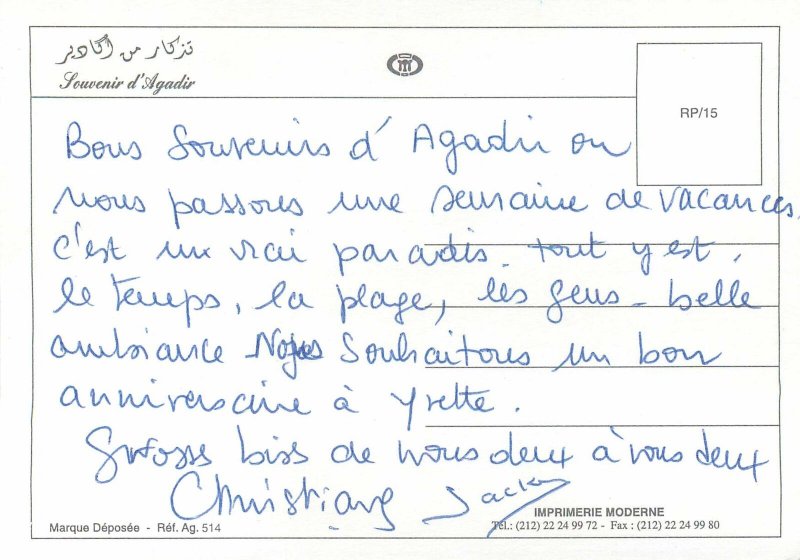 تذكار من أڭادير
Souvenir d'Agadir
RP/15
Bons Souvenirs d'Agadir ou
nous passons une semaine de vacances,
c'est un vrai paradis. tout y est,
le temps, la plage, les gens - belle
ambiance Nous Souhaitons un bon
anniversaire à Yvette.
Grosses biss de nous deux à vous deux
Christiane Jacky
IMPRIMERIE MODERNE
Marque Déposée - Réf. Ag. 514
Tél.: (212) 22 24 99 72 - Fax : (212) 22 24 99 80